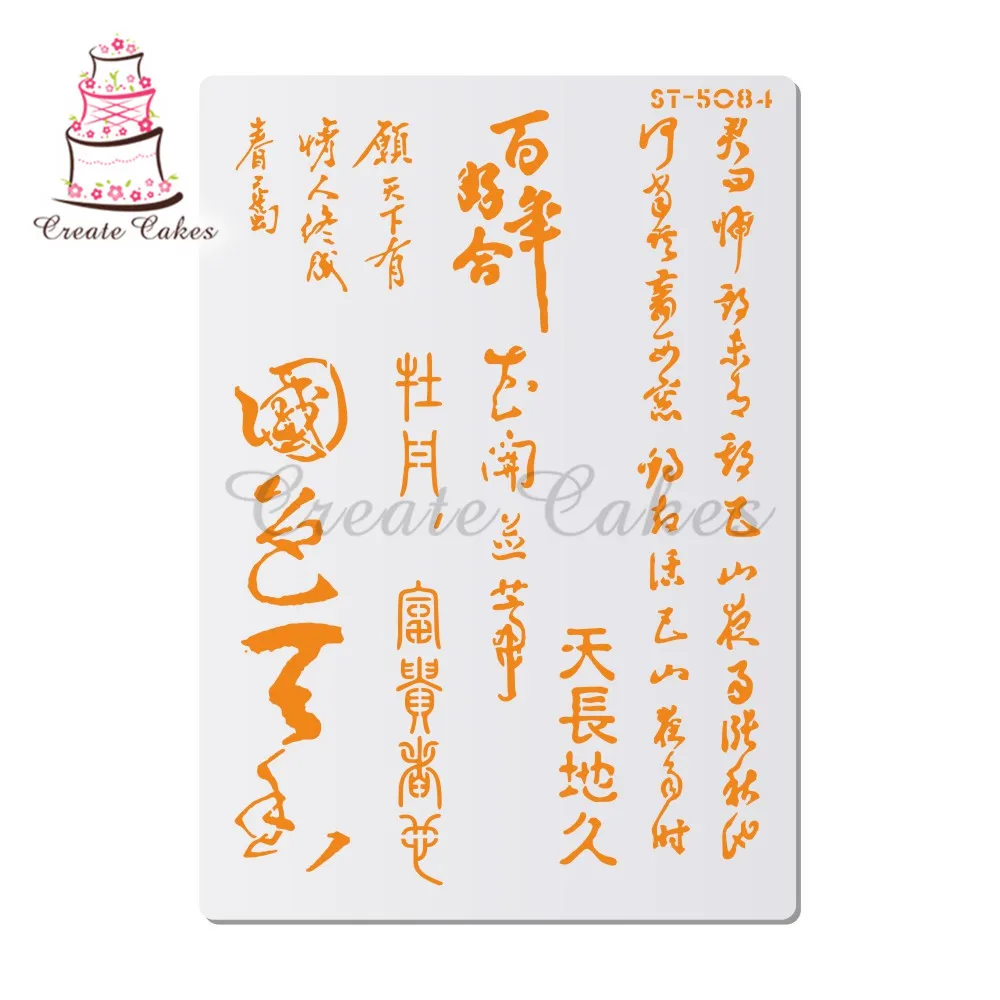 Create Cakes
ST-5084
君問歸期未有期巴山夜雨漲秋池
何當共剪西窗燭却話巴山夜雨時
百年
好合
願天下有
情人終成
眷屬
花開並蒂
天長地久
牡丹，富貴者也
國色天香
Create Cakes